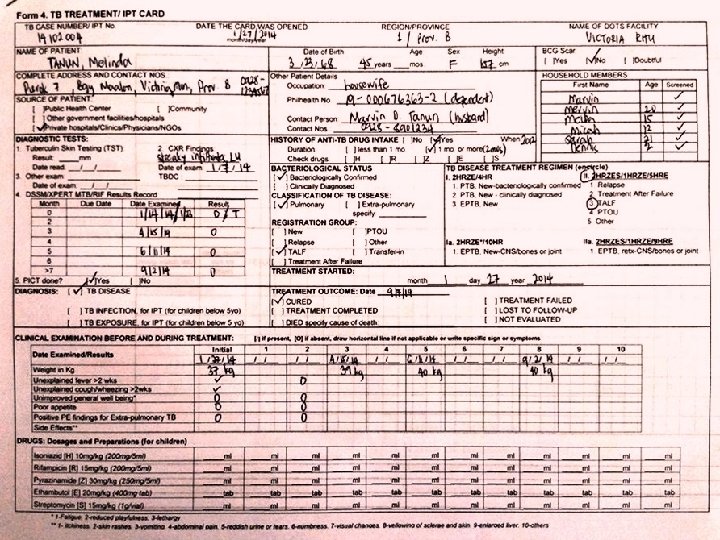 Form 4. TB TREATMENT/ IPT CARD
TB CASE NUMBER/ IPT No. DATE THE CARD WAS OPENED REGION/PROVINCE NAME OF DOTS FACILITY
1/27/2014 1/ Prov. B VICTORIA RHU
NAME OF PATIENT Date of Birth Age Sex Height BCG Scar
Melinda 3/23/68 45 years mos F 157 cm [ ]Yes [✓]No [ ]Doubtful
COMPLETE ADDRESS AND CONTACT NOS. Other Patient Details HOUSEHOLD MEMBERS
Occupation housewife First Name Age Screened
Philhealth No. (dependent) Marvin ✓
SOURCE OF PATIENT
[ ]Public Health Center [ ]Community Contact Person Marvin (husband)
[ ]Other government facilities/hospitals Contact Nos.
[✓]Private hospitals/Clinics/Physicians/NGOs
DIAGNOSTIC TESTS: HISTORY OF ANTI-TB DRUG INTAKE [ ]No [✓]Yes When
1. Tuberculin Skin Testing (TST) 2. CXR Findings Duration [ ]less than 1 mo [✓]1 mo or more
Result mm Check drugs [ ]H [ ]R [ ]Z [ ]E [ ]S
Date read Date of exam 1/7/14
3. Other exam TBDC BACTERIOLOGICAL STATUS TB DISEASE TREATMENT REGIMEN (encircle)
Date of exam [✓] Bacteriologically Confirmed I. 2HRZE/4HR II. 2HRZES/1HRZE/5HRE
4. DSSM/XPERT MTB/RIF Results Record [ ] Clinically Diagnosed 1. PTB, New-bacteriologically confirmed 1 Relapse
Month Due Date Date Examined Result CLASSIFICATION OF TB DISEASE: 2. PTB, New - clinically diagnosed 2. Treatment After Failure
0 [✓] Pulmonary [ ]Extra-pulmonary 3. EPTB, New 3 TALF
2 specify 4 PTOU
3 4/15/14 0 REGISTRATION GROUP: 5 Other
4 [ ]New [ ]PTOU
5 6/11/14 0 [ ]Relapse [ ]Other Ia. 2HRZE/10HR IIa. 2HRZES/1HRZE/9HRE
6 [✓]TALF [ ]Transfer-in 1. EPTB, New-CNS/bones or joint 1. EPTB, retx-CNS/bones or joint
>7 9/2/14 0 [ ] Treatment After Failure
5. PICT done? [✓]Yes [ ]No TREATMENT STARTED: month 1 day 27 year 2014
DIAGNOSIS: [✓] TB DISEASE TREATMENT OUTCOME: Date
[✓] CURED [ ] TREATMENT FAILED
[ ] TB INFECTION, for IPT (for children below 5yo) [ ] TREATMENT COMPLETED [ ] LOST TO FOLLOW-UP
[ ] TB EXPOSURE, for IPT (for children below 5 yo) [ ] DIED specify cause of death [ ] NOT EVALUATED
CLINICAL EXAMINATION BEFORE AND DURING TREATMENT: [/] if present, [0] if absent, draw horizontal line if not applicable or write specific sign or symptoms
Date Examined/Results Initial 1 2 3 4 5 6 7 8 9 10
Weight in Kg 37 kg 39 kg 40 kg 40 kg
Unexplained fever >2 wks ✓ 0
Unexplained cough/wheezing >2wks ✓
Unimproved general well being* 0 0
Poor appetite 0 0
Positive PE findings for Extra-pulmonary TB 0 0
Side Effects**
DRUGS: Dosages and Preparations (for children)
Isoniazid [H] 10mg/kg (200mg/5ml) ml ml ml ml ml ml ml ml ml ml ml
Rifampicin [R] 15mg/kg (200mg/5ml) ml ml ml ml ml ml ml ml ml ml ml
Pyrazinamide [Z] 30mg/kg (250mg/5ml) ml ml ml ml ml ml ml ml ml ml ml
Ethambutol [E] 20mg/kg (400mg tab) tab tab tab tab tab tab tab tab tab tab tab
Streptomycin [S] 15mg/kg (1g/vial) ml ml ml ml ml ml ml ml ml ml ml
* 1-Fatigue 2-reduced playfulness 3-lethargy
** 1- Itchiness 2-skin rashes 3-vomiting 4-abdominal pain 5-reddish urine or tears 6-numbness 7-visual changes 8-yellowing of sclerae and skin 9-enlarged liver 10-others